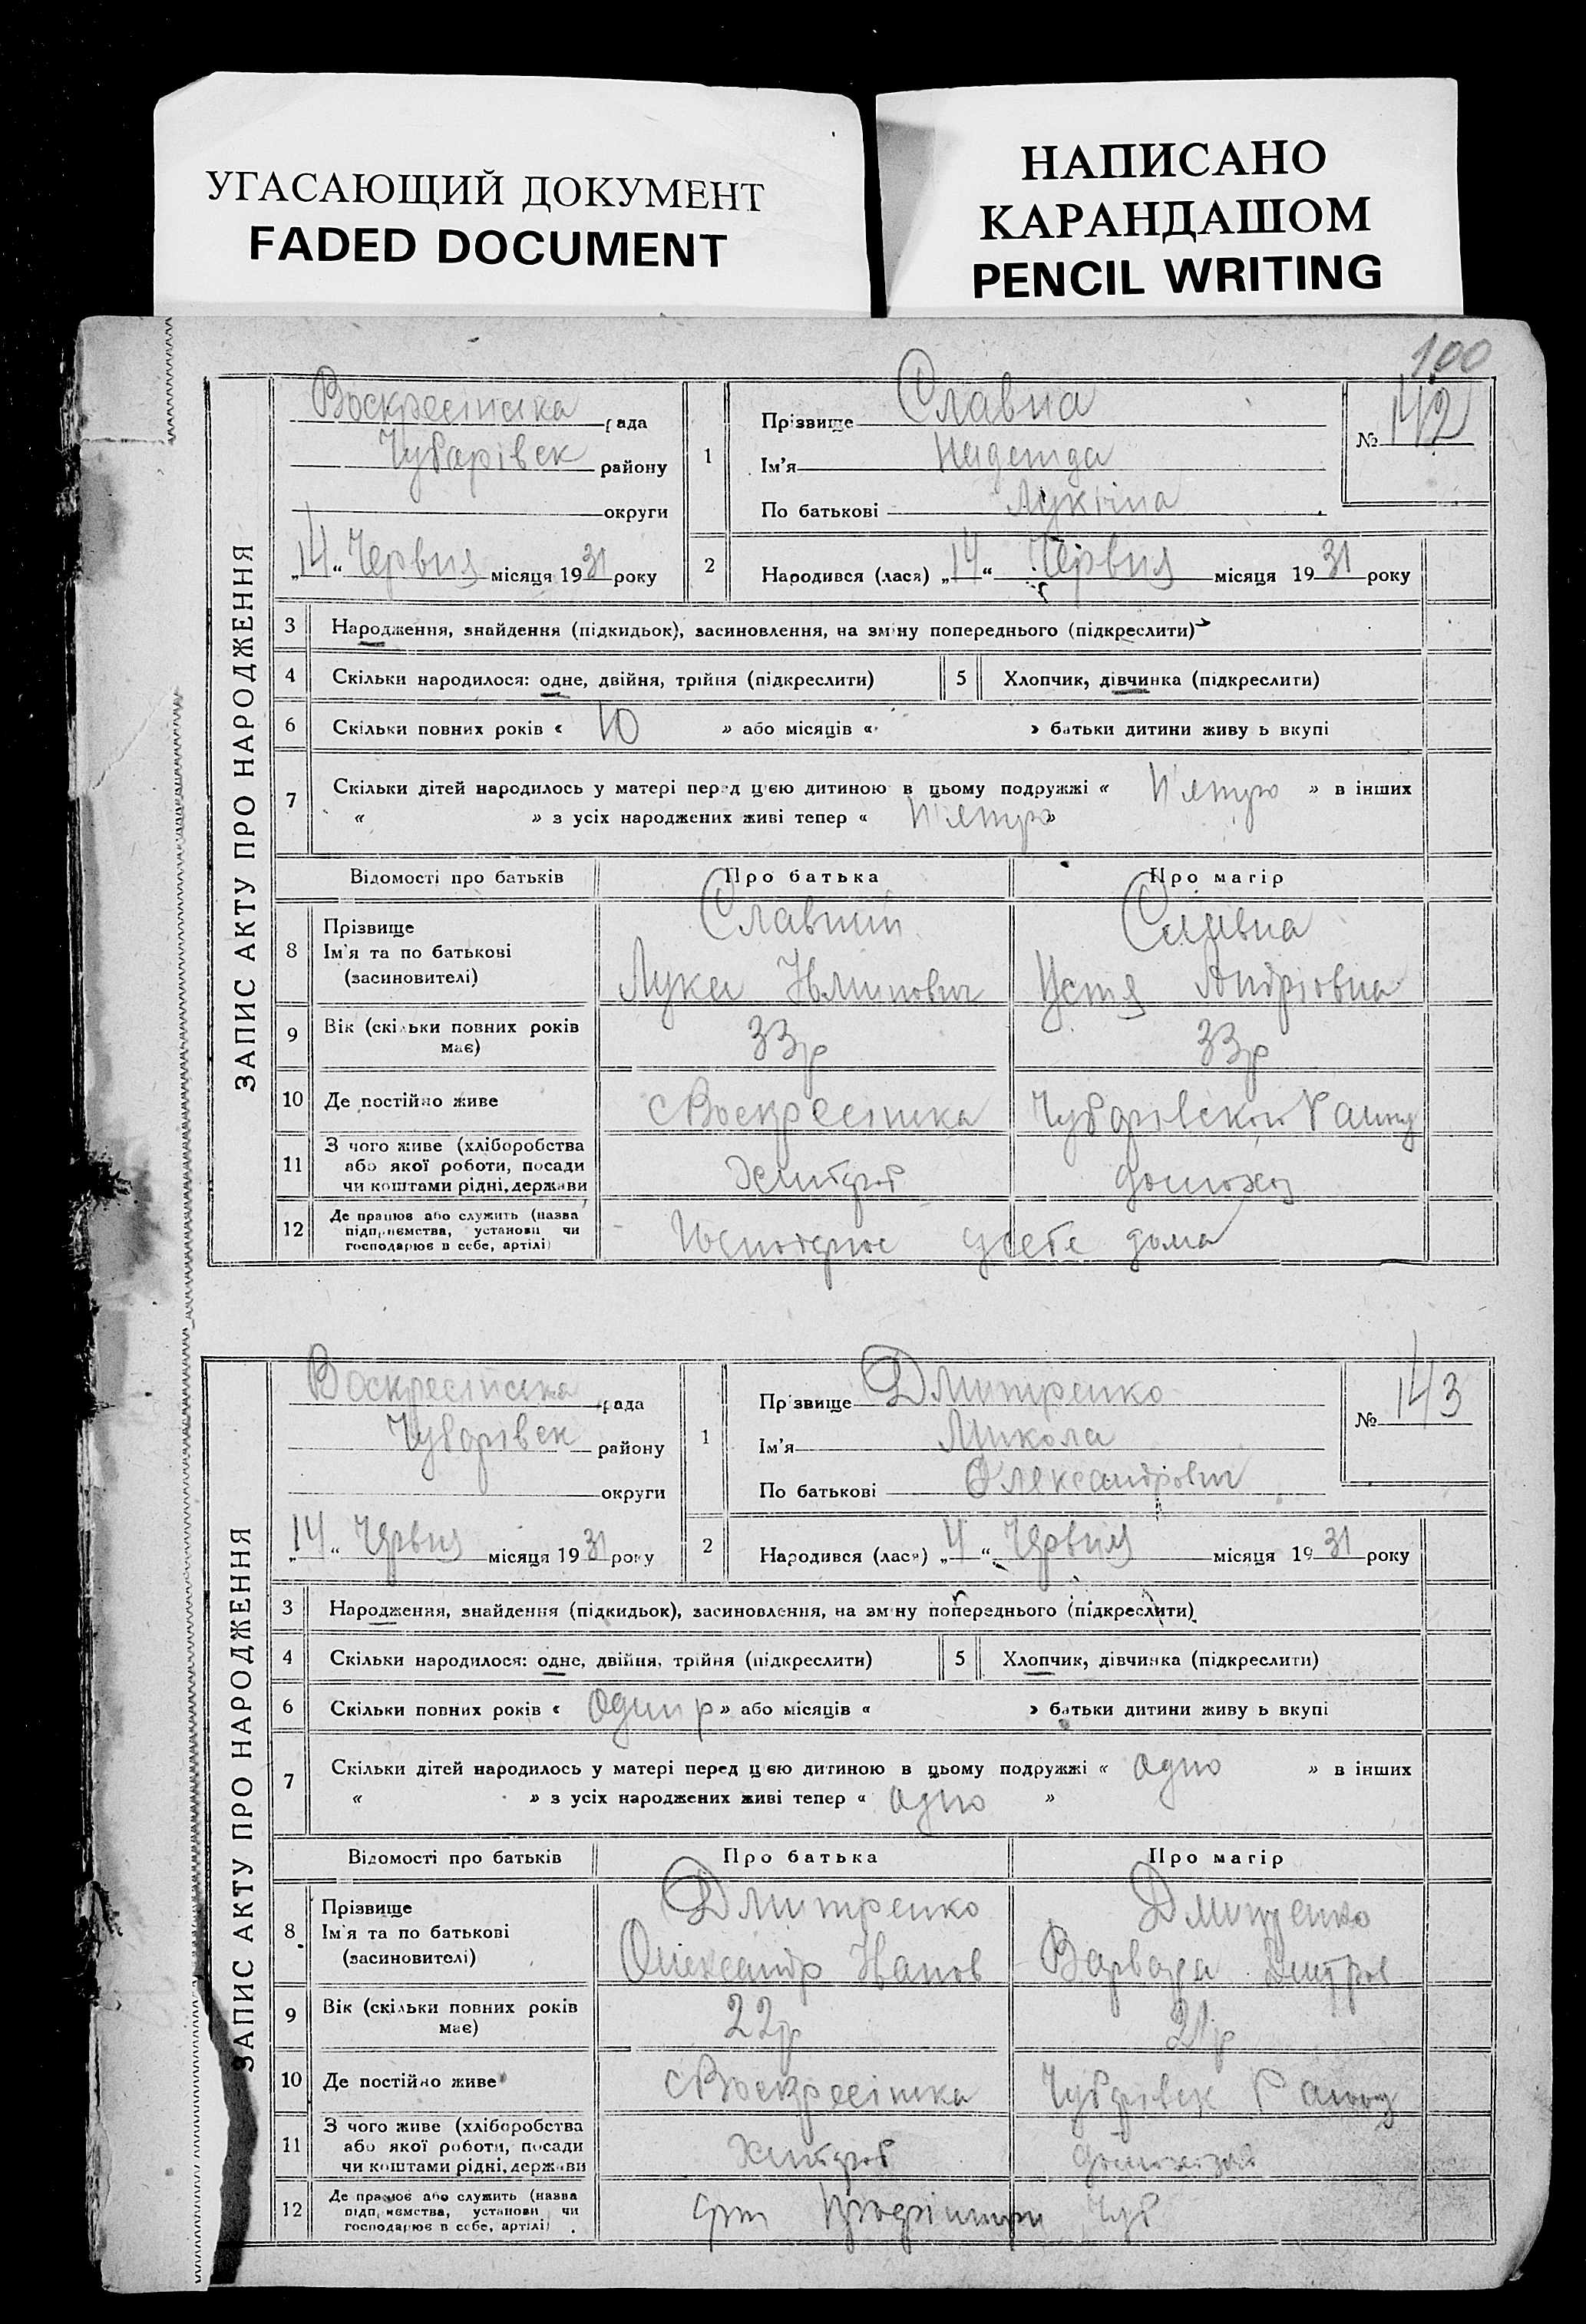 УГАСАЮЩИЙ ДОКУМЕНТ
FADED DOCUMENT
НАПИСАНО
КАРАНДАШОМ
PENCIL WRITING
100
ЗАПИС АКТУ ПРО НАРОДЖЕННЯ
Воскресінська рада
Чубарівськ району
округи
„14“ Червня місяця 1931 року
1 Прізвище Славна
Ім'я Надежда
По батькові Лукічна
№ 142
2 Народився (лася) „14“ Червня місяця 1931 року
3 Народження, знайдення (підкидьок), засиновлення, на зміну попереднього (підкреслити)
4 Скільки народилося: одне, двійня, трійня (підкреслити) 5 Хлопчик, дівчинка (підкреслити)
6 Скільки повних років « 10 » або місяців « » батьки дитини живуть вкупі
7 Скільки дітей народилось у матері перед цією дитиною в цьому подружжі « п'ятеро » в інших
« » з усіх народжених живі тепер « п'ятеро »
Відомості про батьків Про батька Про матір
8 Прізвище Ім'я та по батькові (засиновителі) Славний Лука Славна Устя Андріовна
9 Вік (скільки повних років має) 33р 33р
10 Де постійно живе с Воскресінка Чубарівского Району
11 З чого живе (хліборобства або якої роботи, посади чи коштами рідні, держави) Хлібороб домохоз
12 Де працює або служить (назва підприємства, установи чи господарює в себе, артілі) дома
ЗАПИС АКТУ ПРО НАРОДЖЕННЯ
Воскресінська рада
Чубарівськ району
округи
„14“ Червня місяця 1931 року
1 Прізвище Дмитренко
Ім'я Микола
По батькові Олександрович
№ 143
2 Народився (лася) „4“ Червня місяця 1931 року
3 Народження, знайдення (підкидьок), засиновлення, на зміну попереднього (підкреслити)
4 Скільки народилося: одне, двійня, трійня (підкреслити) 5 Хлопчик, дівчинка (підкреслити)
6 Скільки повних років « один р » або місяців « » батьки дитини живуть вкупі
7 Скільки дітей народилось у матері перед цією дитиною в цьому подружжі « одно » в інших
« » з усіх народжених живі тепер « одно »
Відомості про батьків Про батька Про матір
8 Прізвище Ім'я та по батькові (засиновителі) Дмитренко Олександр Иванов Дмитренко Варвара Дмитров
9 Вік (скільки повних років має) 22р 21р
10 Де постійно живе с Воскресінка Чубарівск Району
11 З чого живе (хліборобства або якої роботи, посади чи коштами рідні, держави) Хлібороб
12 Де працює або служить (назва підприємства, установи чи господарює в себе, артілі)